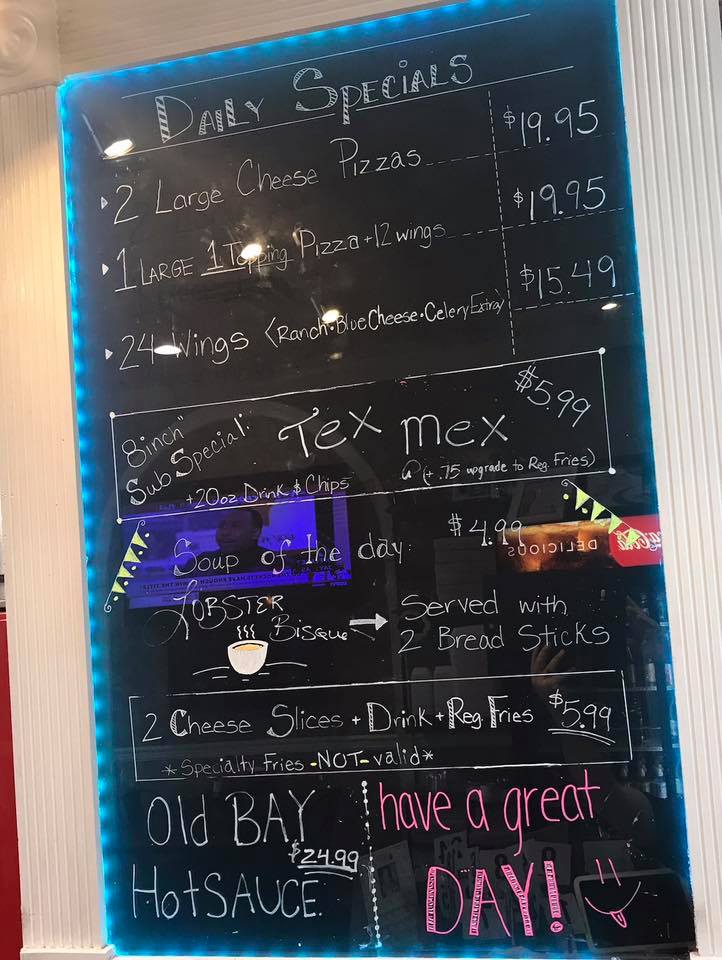 DAILY SPECIALS
▸2 Large Cheese Pizzas $19.95
▸1 LARGE 1 Topping Pizza + 12 wings $19.95
▸24 Wings (Ranch・Blue Cheese・Celery Extra) $15.49
8inch" Sub Special: Tex mex $5.99
+20oz Drink & Chips (+.75 upgrade to Reg. Fries)
Soup of the day: $4.99
LOBSTER Bisque → Served with
2 Bread Sticks
2 Cheese Slices + Drink + Reg. Fries $5.99
*Specialty Fries -NOT- valid*
Old BAY
$24.99
HotSAUCE
have a great
DAY!
DELICIOUS
Coca-Cola